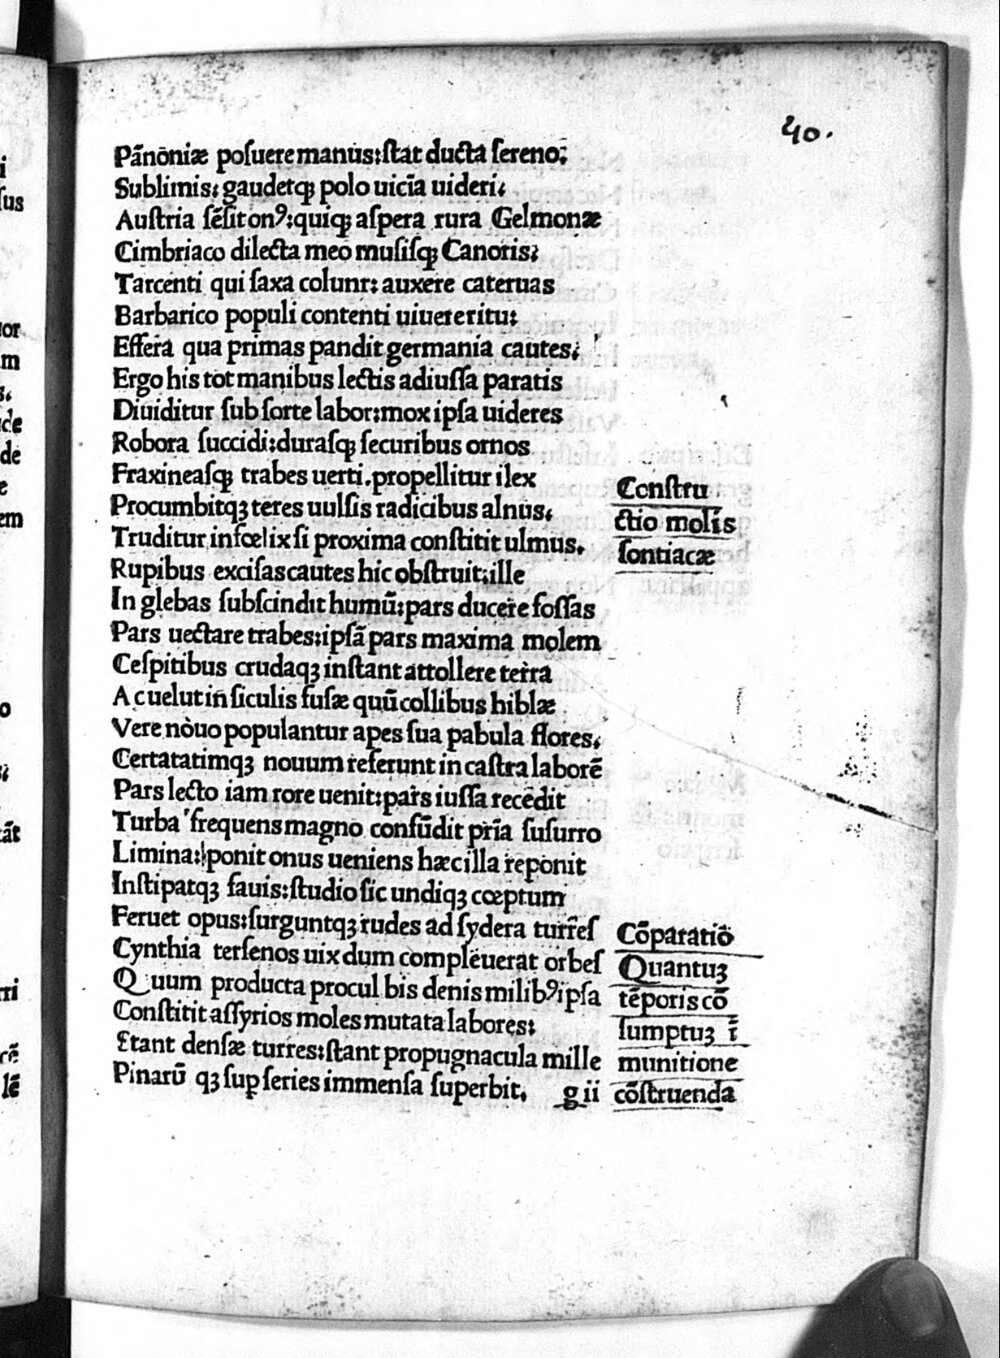 40.
Pãnõniæ posuere manus: stat ducta sereno:
Sublimis: gaudetqꝫ polo uicĩa uideri:
Austria sẽsit onꝰ: quiqꝫ aspera rura Gelmonæ
Cimbriaco dilecta meo musisqꝫ Canoris:
Tarcenti qui saxa colunt: auxere cateruas
Barbarico populi contenti uiuere ritu:
Effera qua primas pandit germania cautes:
Ergo his tot manibus lectis ad iussa paratis
Diuiditur sub sorte labor: mox ipsa uideres
Robora succidi: durasqꝫ securibus ornos
Fraxineasqꝫ trabes uerti. propellitur ilex
Procumbitqꝫ teres uulsis radicibus alnus.
Truditur infœlix si proxima constitit ulmus.
Rupibus excisas cautes hic obstruit: ille
In glebas subscindit humũ: pars ducere fossas
Pars uectare trabes: ipsã pars maxima molem
Cespitibus crudaqꝫ instant attollere terra
Ac uelut in siculis fusæ quũ collibus hiblæ
Vere nouo populantur apes sua pabula flores.
Certatatimqꝫ nouum referunt in castra laborẽ
Pars lecto iam rore uenit: pars iussa recedit
Turba frequens magno consũdit pria susurro
Limina: ponit onus ueniens hæc illa reponit
Instipatqꝫ fauis: studio sic undiqꝫ cœptum
Feruet opus: surguntqꝫ rudes ad sydera turres
Cynthia ter senos uix dum compleuerat orbes
Quum producta procul bis denis milibꝰ ipsa
Constitit assyrios moles mutata labores:
Stant densæ turres: stant propugnacula mille
Pinarũ qꝫ suꝑ series immensa superbit. g ii
Constru
ctio molis
sontiacæ
Cõparatio
Quantuꝫ
tẽporis cõ
sumptuꝫ ĩ
munitione
cõstruenda